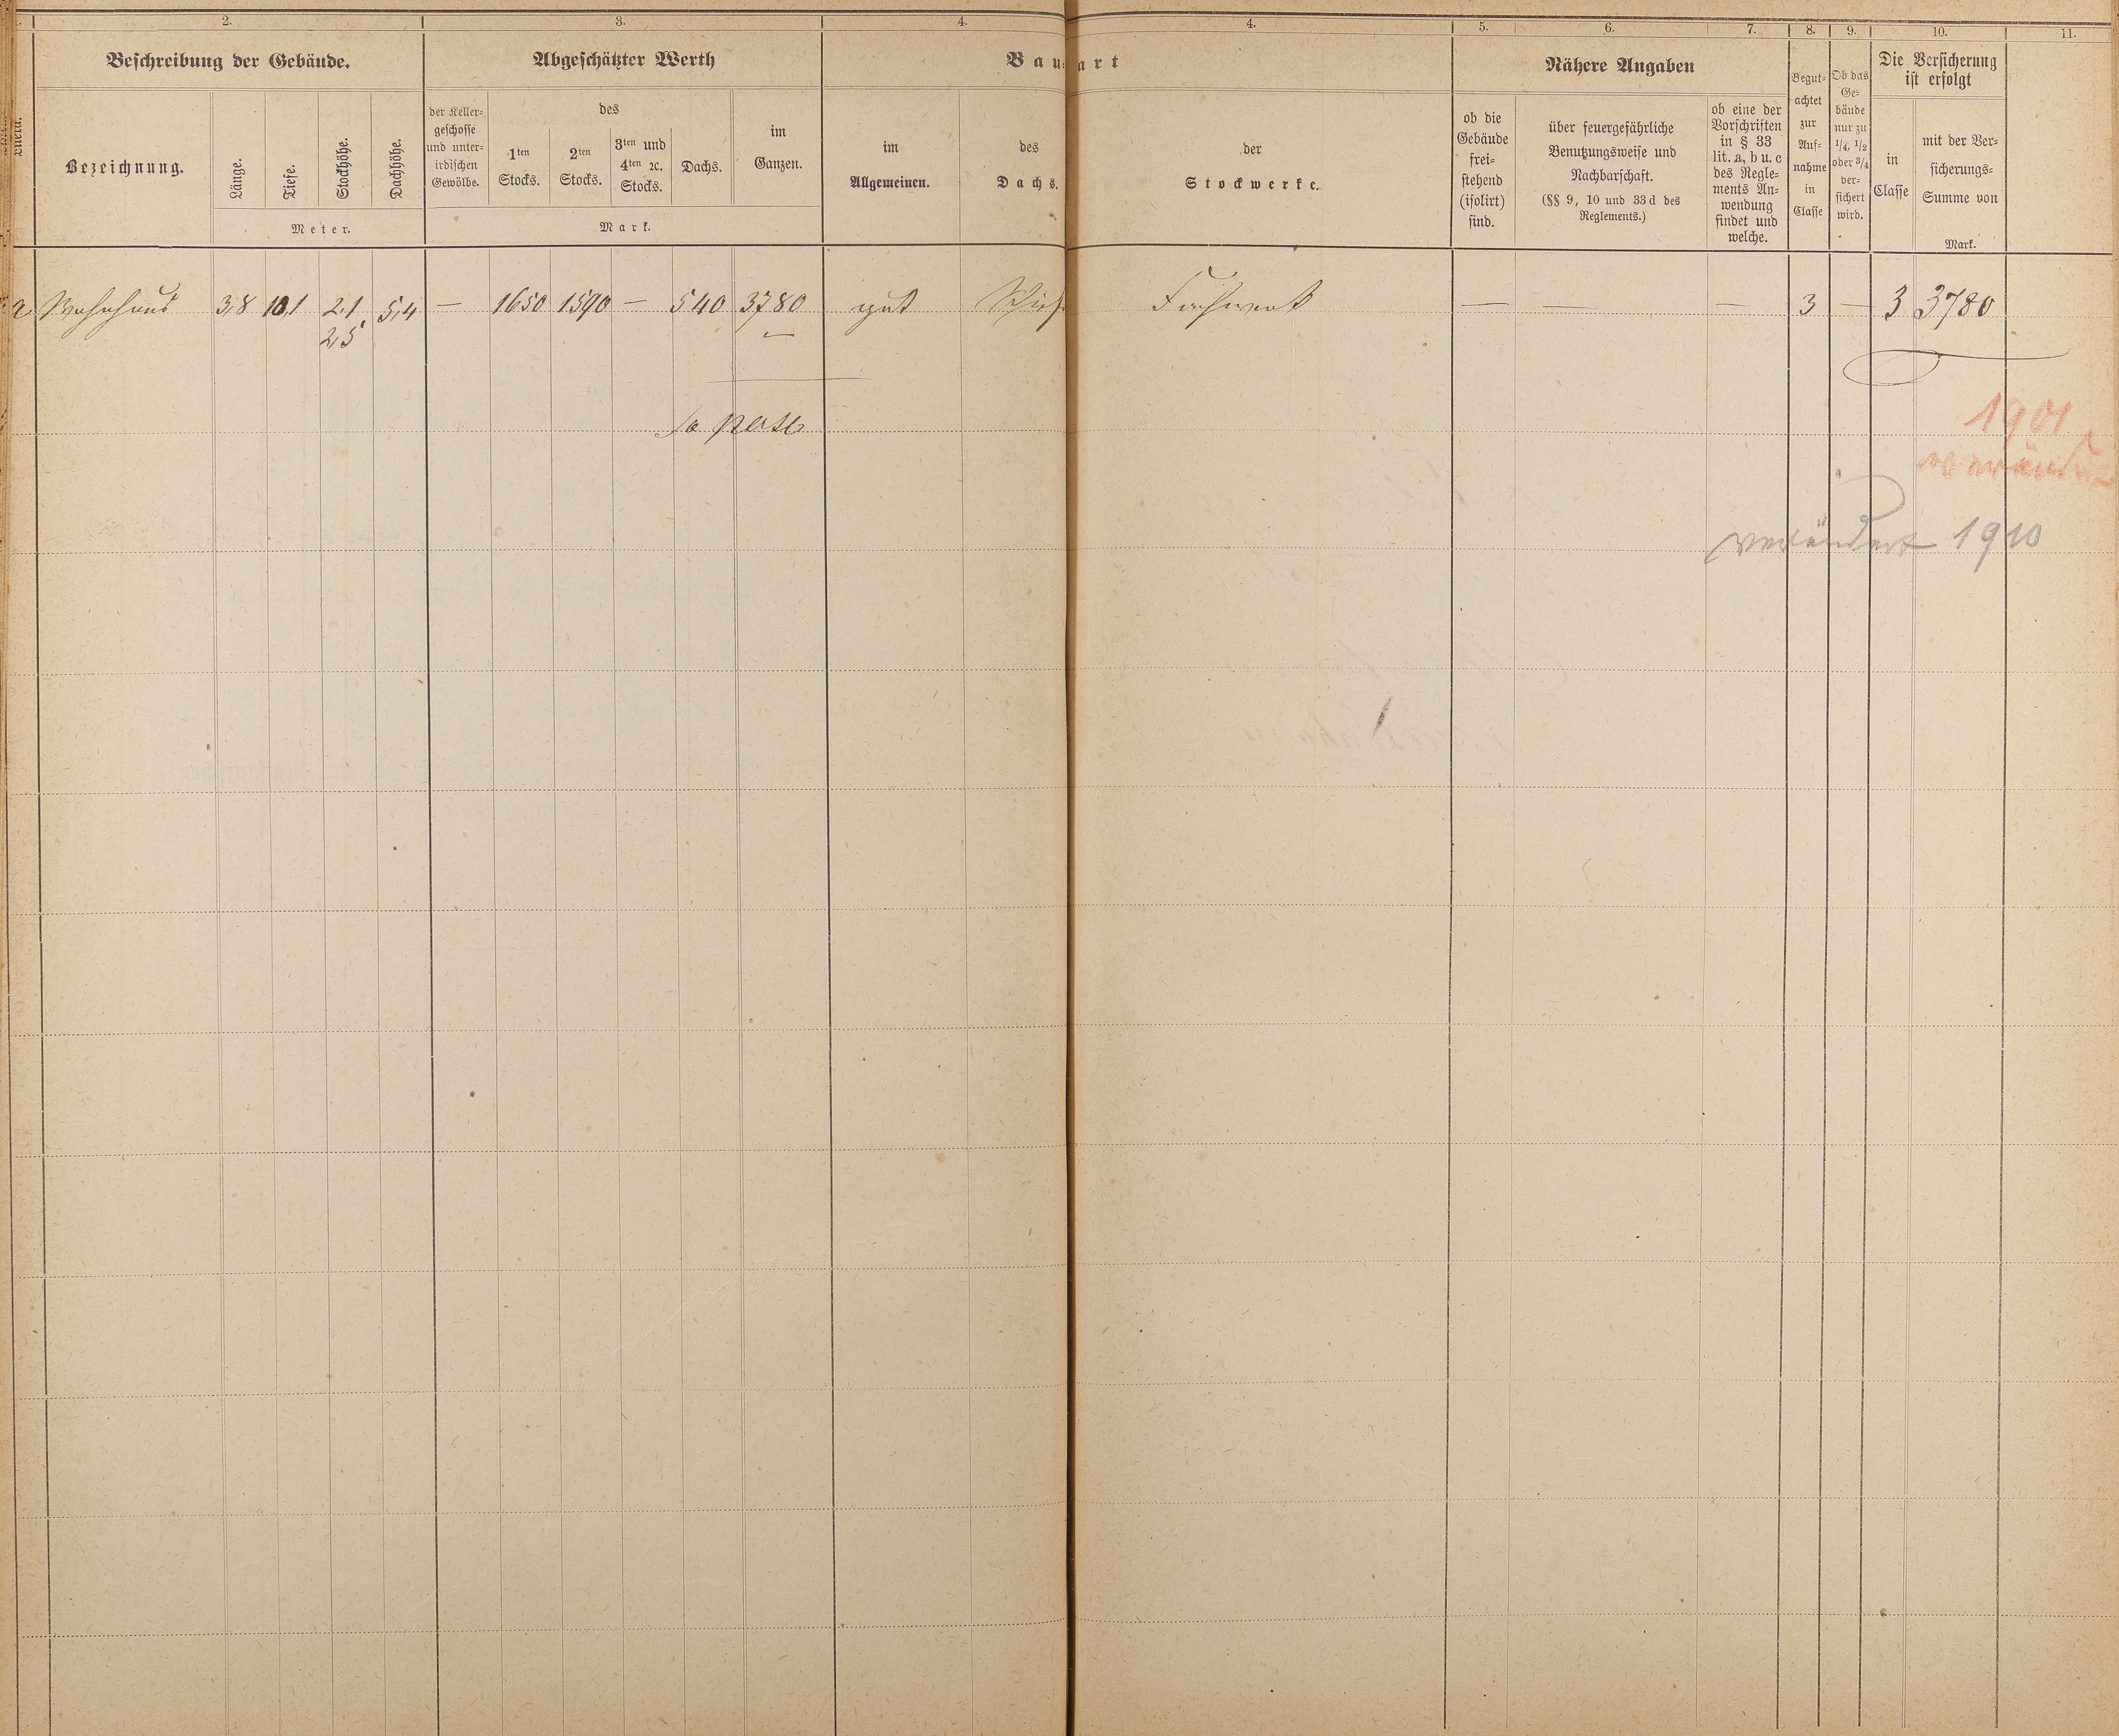 2. 3. 4. 4. 5. 6. 7. 8. 9. 10. 11.
Beschreibung der Gebäude.
Bezeichnung.
Länge.
Tiefe.
Stockhöhe.
Dachhöhe.
Meter.
Abgeschätzter Werth
der Keller-
geschosse
und unter-
irdischen
Gewölbe.
des
1ten
Stocks.
2ten
Stocks.
3ten und
4ten ꝛc.
Stocks.
Dachs.
im
Ganzen.
Mark.
Bauart
im
Allgemeinen.
des
Dachs.
der
Stockwerke.
Nähere Angaben
ob die
Gebäude
frei-
stehend
(isolirt)
sind.
über feuergefährliche
Benutzungsweise und
Nachbarschaft.
(§§ 9, 10 und 33d des
Reglements.)
ob eine der
Vorschriften
in § 33
lit. a, b u. c
des Regle-
ments An-
wendung
findet und
welche.
Begut-
achtet
zur
Auf-
nahme
in
Classe
Ob das
Ge-
bäude
nur zu
1/4, 1/2
oder 3/4
ver-
sichert
wird.
Die Versicherung
ist erfolgt
in
Classe
mit der Ver-
sicherungs-
Summe von
Mark.
a Wohnhaus 3,8 10,1 2,1 5,4 — 1650 1590 — 540 3780 gut Fachwerk — — — 3 — 3 3780
2,5
1901
verändert 1910